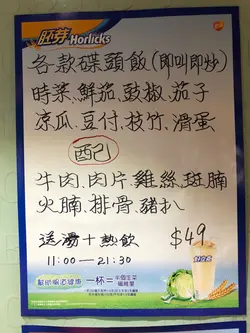 胚芽 Horlicks
各款碟頭飯(即叫即炒)
時菜.鮮茄.豉椒.茄子
凉瓜.豆付.枝竹.滑蛋
配
牛肉.肉片.雞絲.斑腩
火腩.排骨.豬扒
送湯+熱飲 $49
11:00—21:30
一杯=